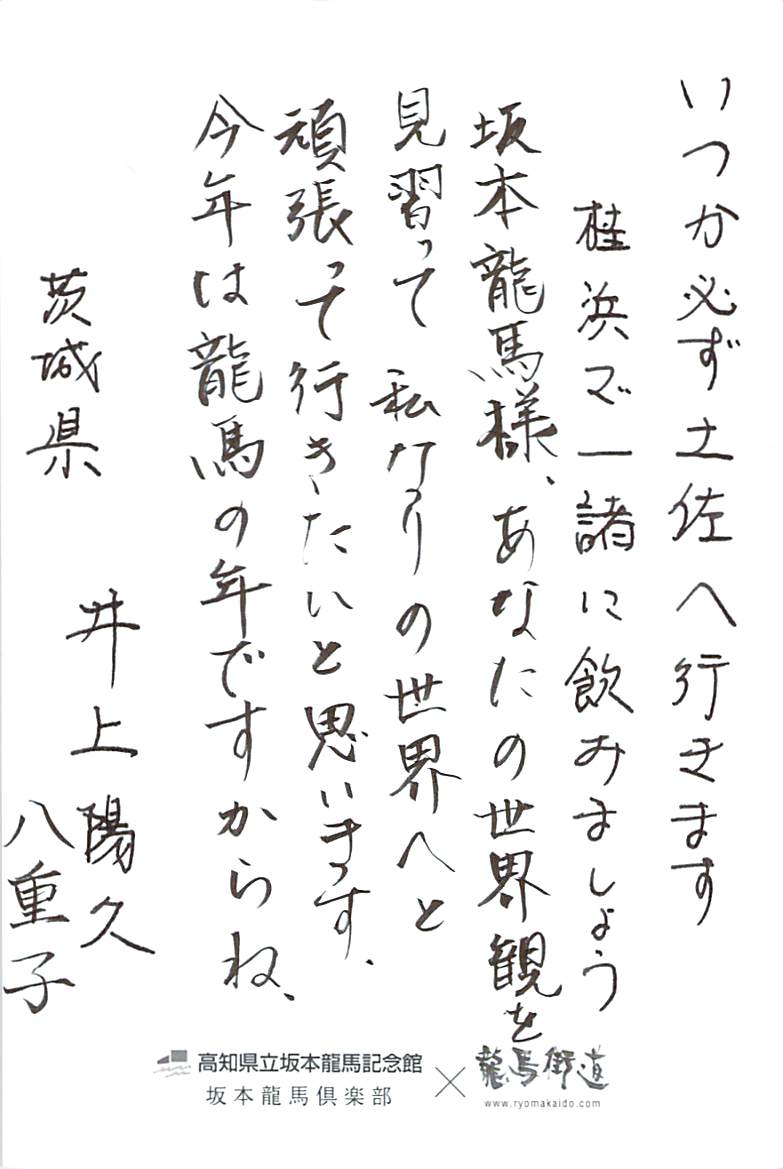 いつか必ず土佐へ行きます
桂浜で一諸に飲みましょう
坂本龍馬様、あなたの世界観を
見習って私なりの世界へと
頑張って行きたいと思います、
今年は龍馬の年ですからね、
茨城県
井上陽久
八重子
高知県立坂本龍馬記念館
坂本龍馬倶楽部
×
龍馬街道
www.ryomakaido.com